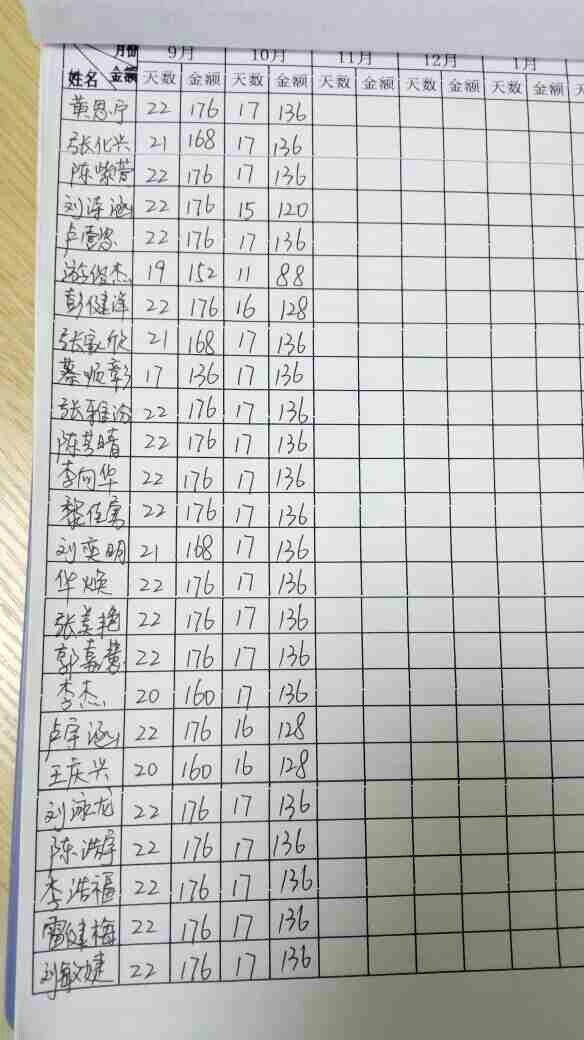 月份 9月 10月 11月 12月 1月
姓名 金额 天数 金额 天数 金额 天数 金额 天数 金额 天数 金额
黄恩宁 22 176 17 136
张化兴 21 168 17 136
陈紫萱 22 176 17 136
刘泽涵 22 176 15 120
卢 22 176 17 136
游俊杰 19 152 11 88
彭健泽 22 176 16 128
张家欣 21 168 17 136
蔡顺彰 17 136 17 136
张雅汾 22 176 17 136
陈芳晴 22 176 17 136
李向华 22 176 17 136
黎佳 22 176 17 136
刘奕明 21 168 17 136
华焕 22 176 17 136
张美艳 22 176 17 136
郭嘉 22 176 17 136
李杰 20 160 17 136
卢宇涵 22 176 16 128
王庆兴 20 160 16 128
刘泳龙 22 176 17 136
陈浩宇 22 176 17 136
李浩福 22 176 17 136
雷健梅 22 176 17 136
刘敏婕 22 176 17 136